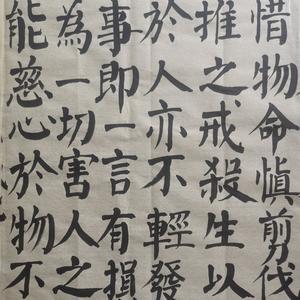 惜物命慎前伐
推之戒殺生以
於人亦不輕發
事即一言有損
為一切害人之
能慈心於物不